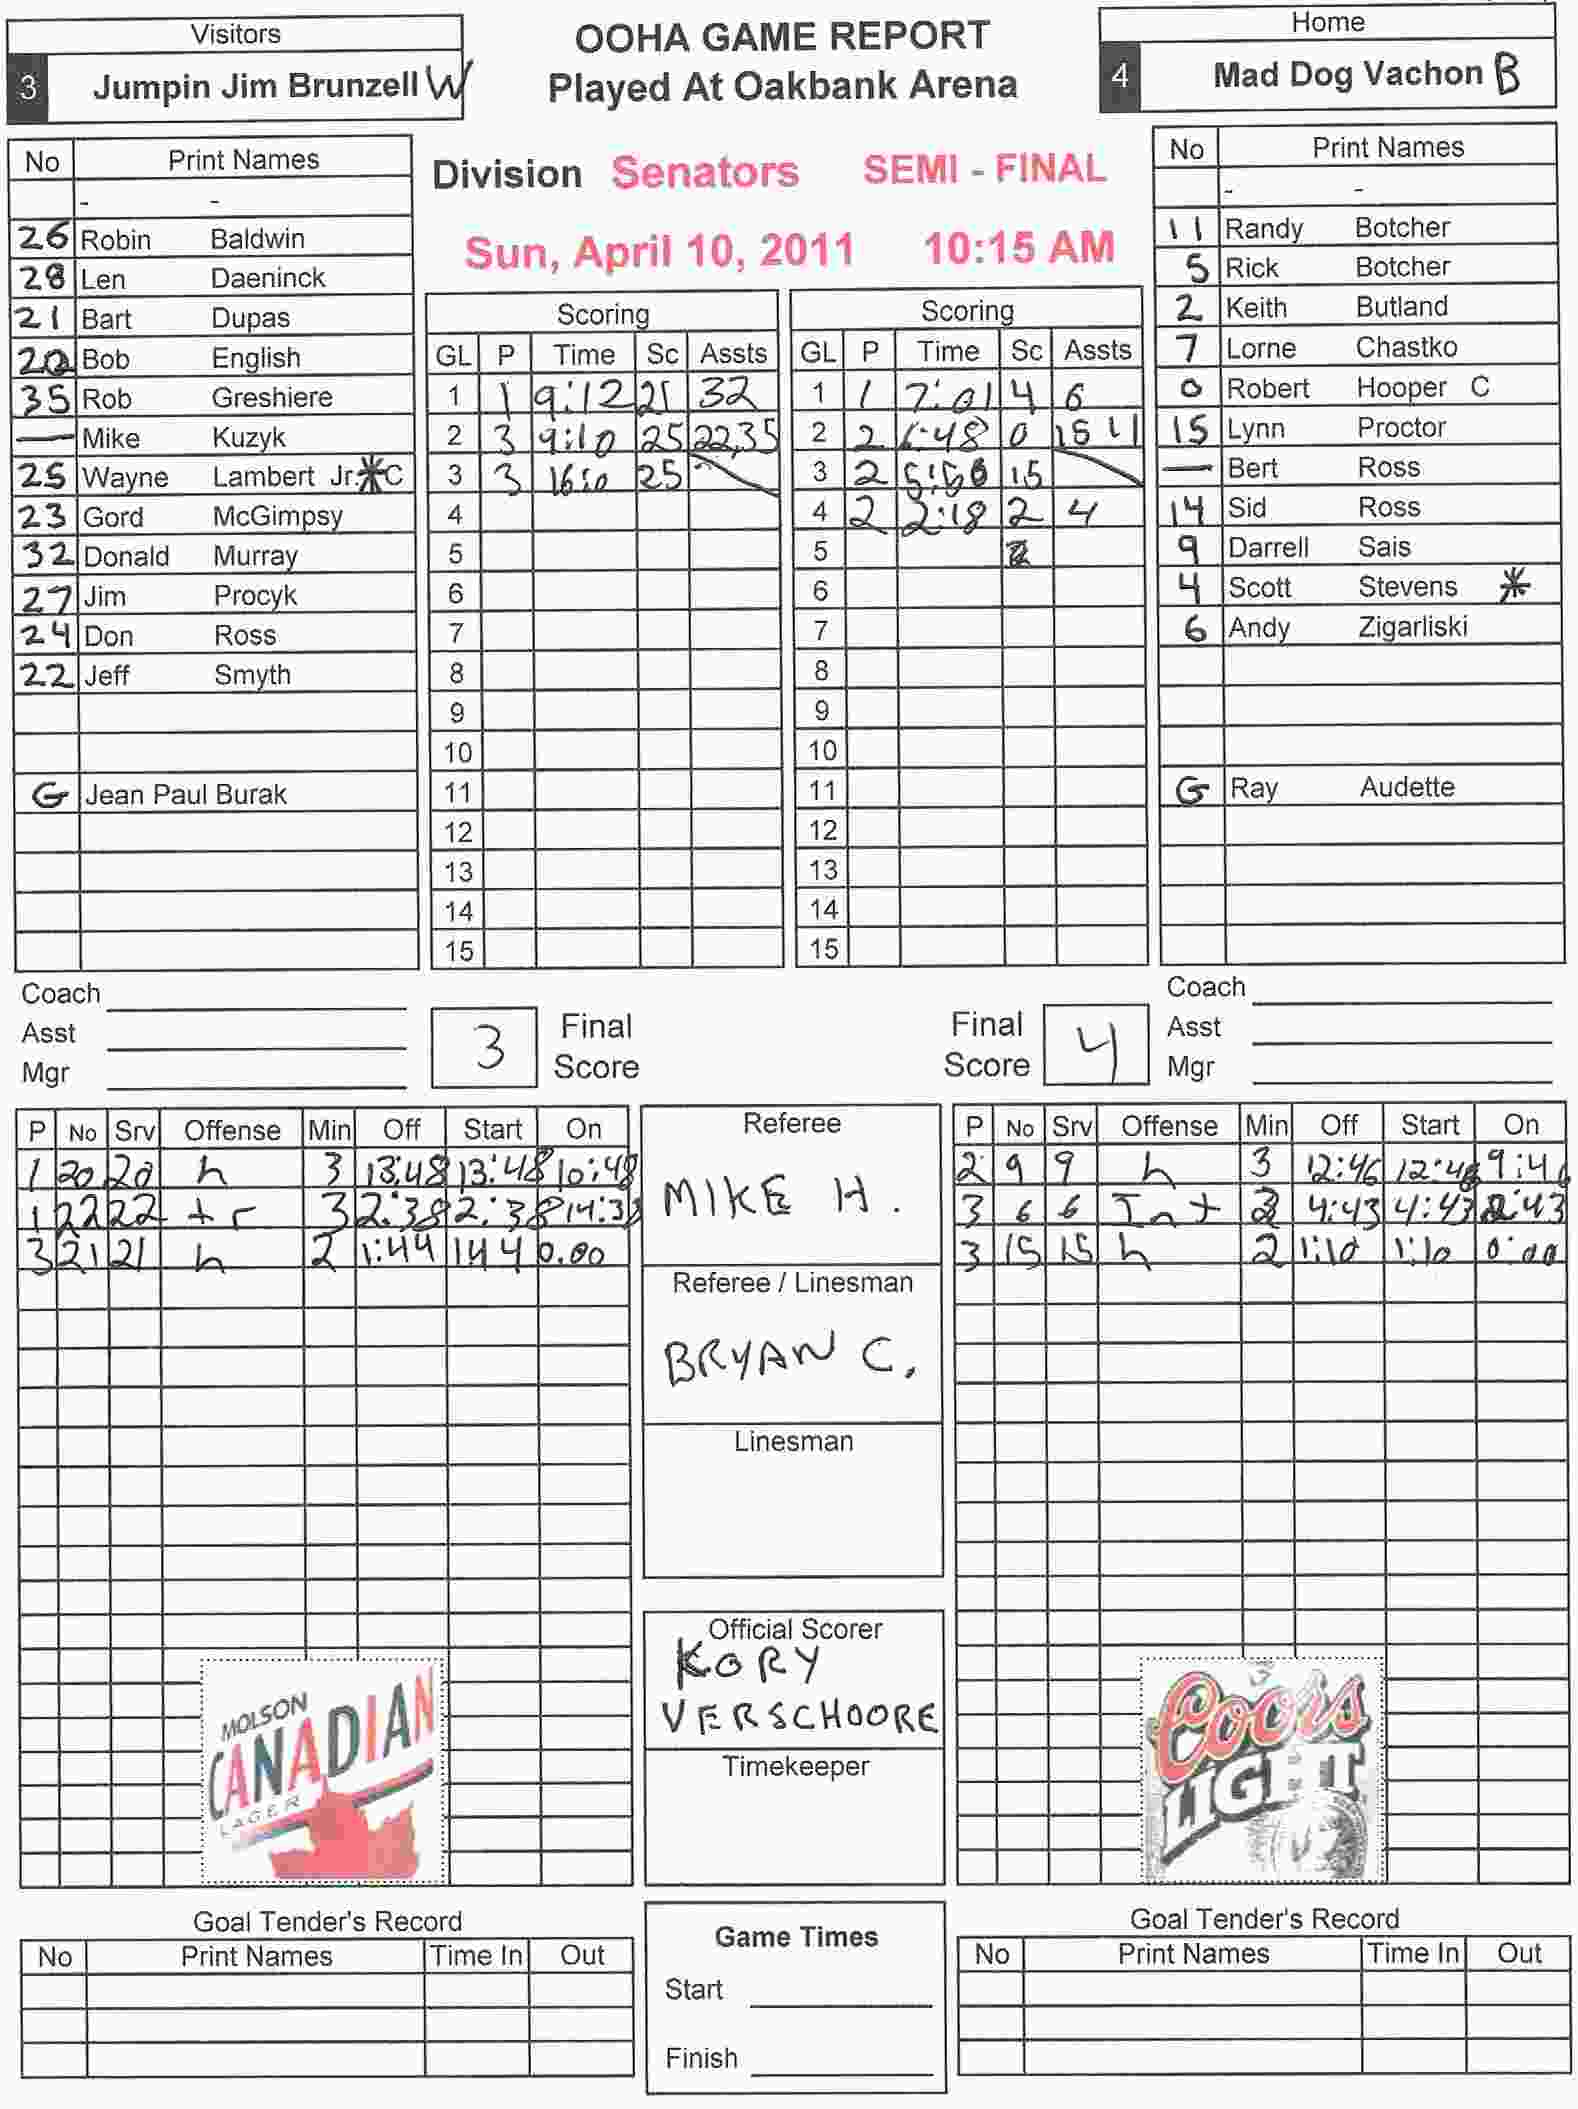 Visitors
3 Jumpin Jim Brunzell W
OOHA GAME REPORT
Played At Oakbank Arena
Home
4 Mad Dog Vachon B
Division Senators SEMI - FINAL
Sun, April 10, 2011 10:15 AM
No Print Names
- -
26 Robin Baldwin
28 Len Daeninck
21 Bart Dupas
20 Bob English
35 Rob Greshiere
— Mike Kuzyk
25 Wayne Lambert Jr.*C
23 Gord McGimpsy
32 Donald Murray
27 Jim Procyk
24 Don Ross
22 Jeff Smyth
G Jean Paul Burak
Scoring
GL P Time Sc Assts
1 1 9:12 21 32
2 3 9:10 25 22,35
3 3 25
4
5
6
7
8
9
10
11
12
13
14
15
Scoring
GL P Time Sc Assts
1 1 7:01 4 6
2 2 6:48 0 15 11
3 2 15
4 2 2:18 2 4
5
6
7
8
9
10
11
12
13
14
15
No Print Names
- -
11 Randy Botcher
5 Rick Botcher
2 Keith Butland
7 Lorne Chastko
0 Robert Hooper C
15 Lynn Proctor
— Bert Ross
14 Sid Ross
9 Darrell Sais
4 Scott Stevens *
6 Andy Zigarliski
G Ray Audette
Coach
Asst
Mgr
3 Final Score
Final Score 4
Coach
Asst
Mgr
P No Srv Offense Min Off Start On
1 20 20 h 3 13:48 13:48 10:48
1 22 22 tr 3 2:38 2:38 14:38
3 21 21 h 2 1:44 144 0.00
Referee
MIKE H.
Referee / Linesman
BRYAN C.
Linesman
Official Scorer
KORY
VERSCHOORE
Timekeeper
P No Srv Offense Min Off Start On
2 9 9 h 3 12:46 12:46 9:46
3 6 6 Int 2 4:43 4:43 2:43
3 15 15 h 2 1:10 1:10 0:00
MOLSON
CANADIAN
LAGER
Coors
LIGHT
Goal Tender's Record
No Print Names Time In Out
Game Times
Start
Finish
Goal Tender's Record
No Print Names Time In Out